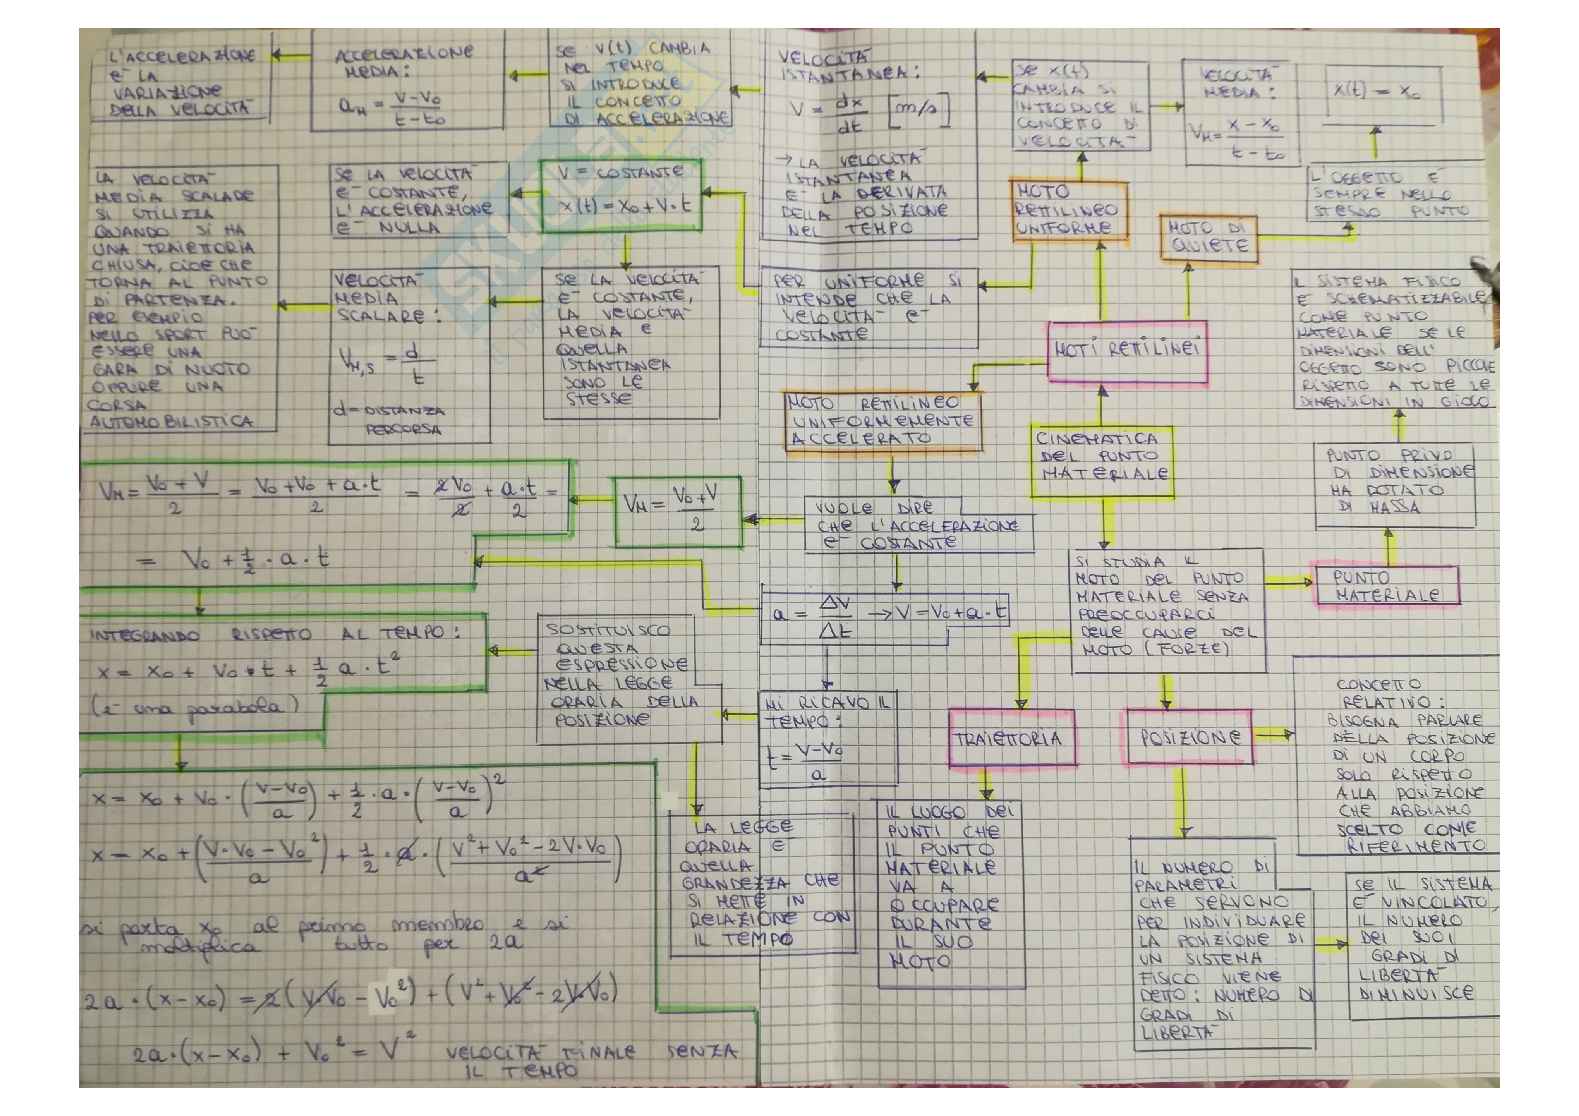 L'ACCELERAZIONE
E' LA
VARIAZIONE
DELLA VELOCITA'
ACCELERAZIONE
MEDIA:
aM = v-v0 / t-t0
SE V(t) CAMBIA
NEL TEMPO
SI INTRODUCE
IL CONCETTO
DI ACCELERAZIONE
VELOCITA'
ISTANTANEA:
V = dx/dt [m/s]
→ LA VELOCITA'
ISTANTANEA
E' LA DERIVATA
DELLA POSIZIONE
NEL TEMPO
SE x(t)
CAMBIA SI
INTRODUCE IL
CONCETTO DI
VELOCITA'
VELOCITA'
MEDIA:
VM = x-x0 / t-t0
x(t) = x0
L'OGGETTO E'
SEMPRE NELLO
STESSO PUNTO
LA VELOCITA'
MEDIA SCALARE
SI UTILIZZA
QUANDO SI HA
UNA TRAIETTORIA
CHIUSA, CIOE' CHE
TORNA AL PUNTO
DI PARTENZA.
PER ESEMPIO
NELLO SPORT PUO'
ESSERE UNA
GARA DI NUOTO
OPPURE UNA
CORSA
AUTOMOBILISTICA
SE LA VELOCITA'
E' COSTANTE,
L'ACCELERAZIONE
E' NULLA
V = COSTANTE
x(t) = x0 + V·t
MOTO
RETTILINEO
UNIFORME
MOTO DI
QUIETE
VELOCITA'
MEDIA
SCALARE:
VM,S = d/t
d= DISTANZA
PERCORSA
SE LA VELOCITA'
E' COSTANTE,
LA VELOCITA'
MEDIA E
QUELLA
ISTANTANEA
SONO LE
STESSE
PER UNIFORME SI
INTENDE CHE LA
VELOCITA' E'
COSTANTE
MOTI RETTILINEI
IL SISTEMA FISICO
E' SCHEMATIZZABILE
COME PUNTO
MATERIALE SE LE
DIMENSIONI DELL'
OGGETTO SONO PICCOLE
RISPETTO A TUTTE LE
DIMENSIONI IN GIOCO
MOTO RETTILINEO
UNIFORMEMENTE
ACCELERATO
CINEMATICA
DEL PUNTO
MATERIALE
PUNTO PRIVO
DI DIMENSIONE
MA DOTATO
DI MASSA
VM = V0 + V / 2 = V0 + V0 + a·t / 2 = 2V0 / 2 + a·t / 2 =
= V0 + 1/2 · a · t
VM = V0+V / 2
VUOLE DIRE
CHE L'ACCELERAZIONE
E' COSTANTE
SI STUDIA IL
MOTO DEL PUNTO
MATERIALE SENZA
PREOCCUPARCI
DELLE CAUSE DEL
MOTO (FORZE)
PUNTO
MATERIALE
a = ΔV/Δt → V = V0 + a·t
INTEGRANDO RISPETTO AL TEMPO:
x = x0 + V0·t + 1/2 a·t²
(è una parabola)
SOSTITUISCO
QUESTA
ESPRESSIONE
NELLA LEGGE
ORARIA DELLA
POSIZIONE
MI RICAVO IL
TEMPO:
t = V-V0 / a
TRAIETTORIA
POSIZIONE
CONCETTO
RELATIVO:
BISOGNA PARLARE
DELLA POSIZIONE
DI UN CORPO
SOLO RISPETTO
ALLA POSIZIONE
CHE ABBIAMO
SCELTO COME
RIFERIMENTO
x = x0 + V0 · (V-V0 / a) + 1/2 · a · (V-V0 / a)²
x = x0 + (V·V0 - V0² / a) + 1/2 · a · (V² + V0² - 2V·V0 / a²)
si porta x0 al primo membro e si
moltiplica tutto per 2a
2a·(x-x0) = 2(V·V0 - V0²) + (V² + V0² - 2V·V0)
2a·(x-x0) + V0² = V² VELOCITA' FINALE SENZA
IL TEMPO
LA LEGGE
ORARIA E'
QUELLA
GRANDEZZA CHE
SI METTE IN
RELAZIONE CON
IL TEMPO
IL LUOGO DEI
PUNTI CHE
IL PUNTO
MATERIALE
VA A
OCCUPARE
DURANTE
IL SUO
MOTO
IL NUMERO DI
PARAMETRI
CHE SERVONO
PER INDIVIDUARE
LA POSIZIONE DI
UN SISTEMA
FISICO VIENE
DETTO: NUMERO DI
GRADI DI
LIBERTA'
SE IL SISTEMA
E' VINCOLATO,
IL NUMERO
DEI SUOI
GRADI DI
LIBERTA'
DIMINUISCE